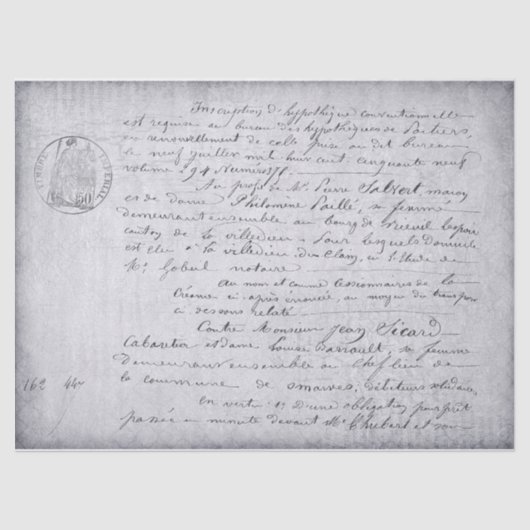 Inscription d'hypothèque conventionnelle
est requise au bureau des hypothèques de Poitiers,
en renouvellement de celle prise au dit bureau
le neuf juillet mil huit cent cinquante neuf
volume 294 Numéro
TIMBRE IMPERIAL
50
Au profit de Mr. Pierre Jalvert
et de dame Philomène Paillé, sa femme
demeurant ensemble au bourg de
canton de la villedieu. Pour lesquels Domicile
est élu à la villedieu du Clain, en l'étude de
Mr. Gobul notaire
Au nom et comme cessionnaires de la
Créance ci-après énoncée, au moyen du transport
ci dessous relaté
Contre Monsieur Jean Sicard
Cabaretier et dame Louise Barrault, sa femme
demeurant ensemble au chef lieu de
la commune de Smarves, débiteurs solidaires
16
44
en vertu 1º D'une obligation pour prêt
passée en minute devant Me